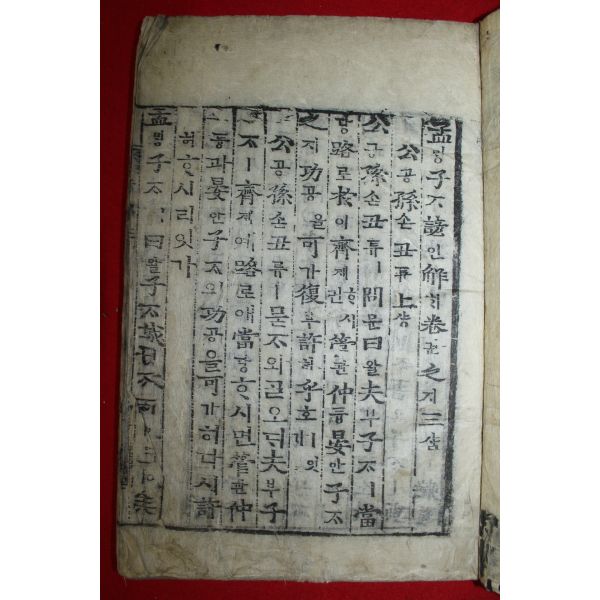 孟ᄆᆡᆼ子ᄌᆞ諺언解ᄒᆡ卷권之지三삼
公공孫손丑튜上샹
公공孫손丑튜ㅣ問문曰왈夫부子ᄌᆞㅣ當
당路로於어齊제ᄒᆞ시管관仲듕晏안子ᄌᆞ
之지功공을可가復부許허乎호ㅣ잇
公공孫손丑튜ㅣ묻ᄌᆞ와ᄀᆞᆯ오ᄃᆡ夫부子
ᄌᆞㅣ齊제예路로애當당ᄒᆞ시면管관仲
듕과晏안子ᄌᆞ의功공을可가히다시許
허ᄒᆞ시리잇가
孟ᄆᆡᆼ子ᄌᆞㅣ曰왈子ᄌᆞ誠